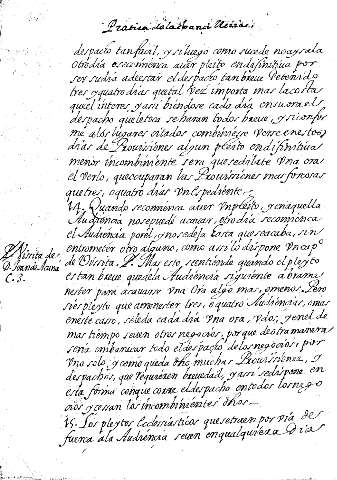 Practica de la chancilleria.
despacho tan facil, y si luego como suçede no aysala
otro dia se comiença a ver pleito en difinitiva por
ser su dia a de estar el despacho tan breve detenido
tres y quatro dias que tal vez importa mas la costa
que el interes, y assi biendose cada dia en su ora el
despacho que le toca se haran todos breve, y si confor
me a los lugares citados combiniese verse en estos
dias de Provisiones algun pleito en difinitiva
menor incombiniente sera que se dilate vna ora
el verlo, que ocuparan las Provisiones mas forçosas
que tres, o quatro dias vn expediente.
14. Quando se comiença a ver vn pleyto, y en aquella
Audiencia no se puede acavar, otro dia se comiença
el Audiencia por el, y no se deja hasta que se acaba, sin
entrometer otro alguno, como assi lo dispone vn cap.º
de Visita. Mas esto, se entiende quando el pleyto
es tan breve que a la Audiencia siguiente a de ser me
nester para acavarse vna ora algo mas, o menos. Pero
si es pleyto que a menester tres, o quatro Audiencias, o mas
en este caso, se le da cada dia vna ora, y dos, y en el de
mas tiempo se ven otros negocios, porque de otra manera
seria embaracar todo el despacho de los negocios, por
vno solo, y como queda dho, muchas Provisiones, y
despachos, que requieren brevedad, y assi se dispone en
esta forma con que corre el despacho en todos los nego
cios y cessan los incombinientes dhos.
15. Los pleytos Ecclesiasticos que se traen por via de
fuerça a la Audiencia se ven en qualquiera dias
Visita de
D. Juan de Acuna
C. 5.